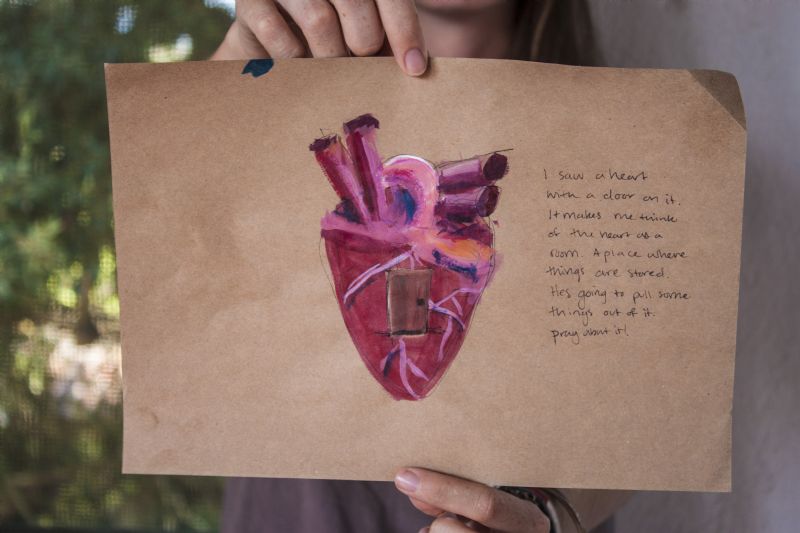 I saw a heart
with a door on it.
It makes me think
of the heart as a
room. A place where
things are stored.
Hes going to pull some
things out of it.
pray about it!